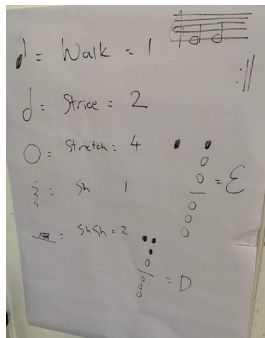 = Walk = 1
= Strice = 2
= Stretch = 4
= Sh 1
= ShSh = 2
= E
= D